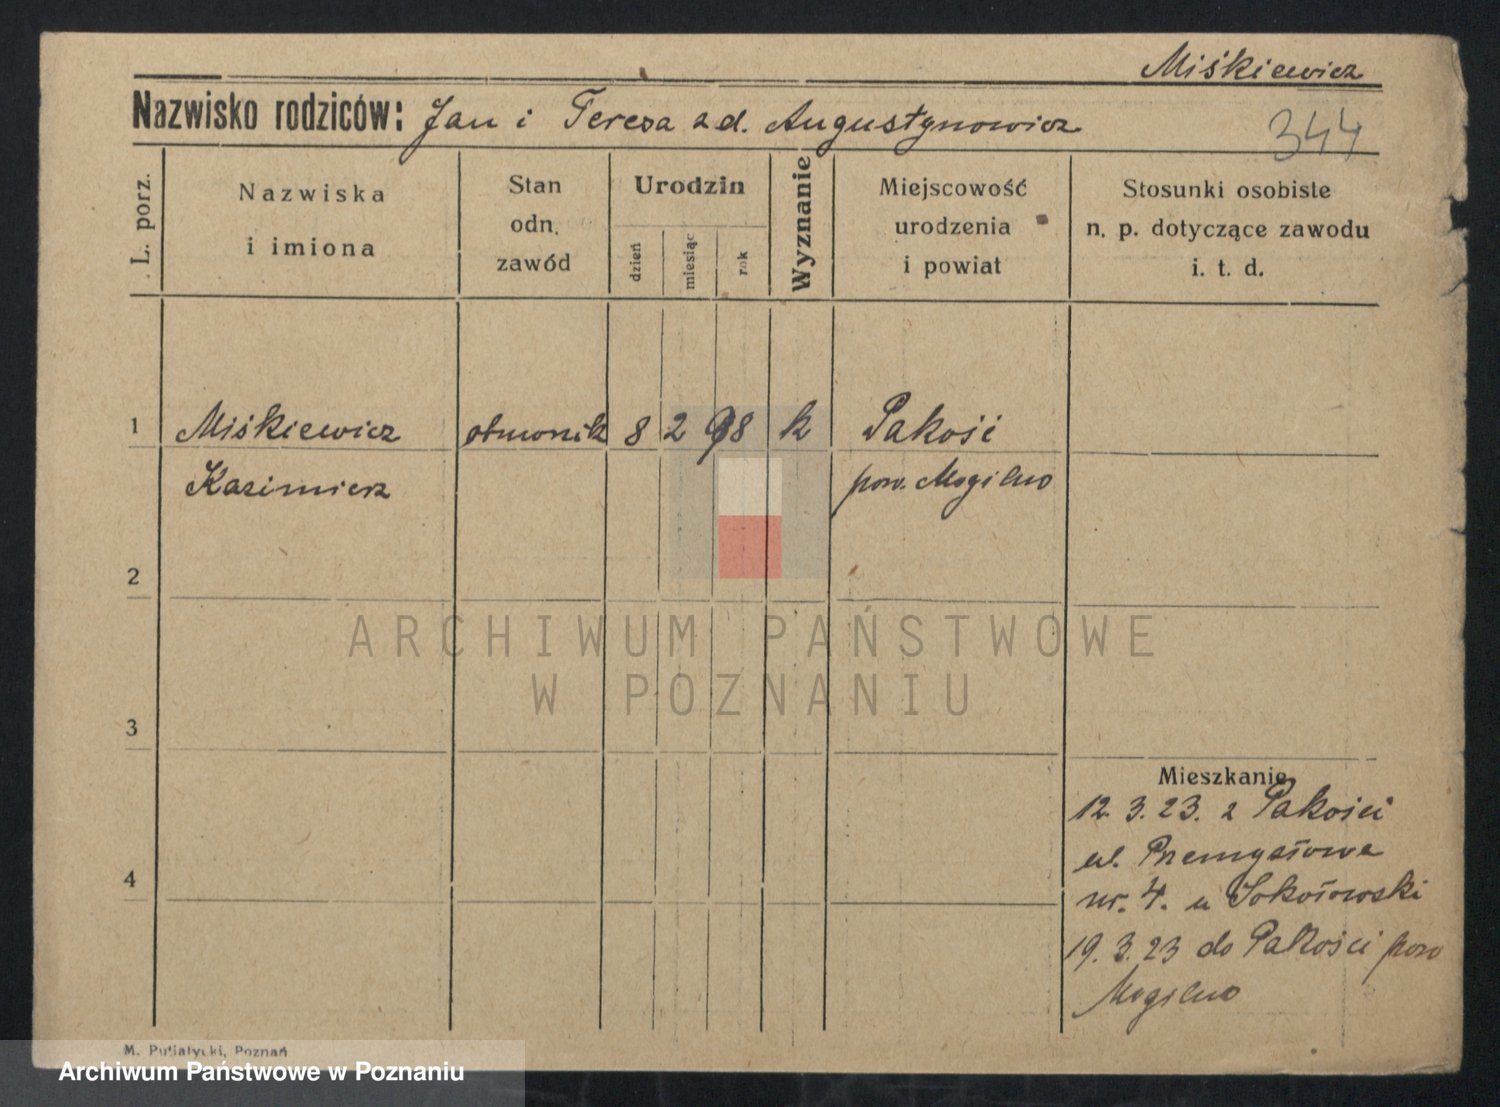 Miśkiewicz
Nazwisko rodziców: Jan i Teresa z d. Augustynowicz
344
L. porz.
Nazwiska
i imiona
Stan
odn.
zawód
Urodzin
dzień
miesiąc
rok
Wyznanie
Miejscowość
urodzenia
i powiat
Stosunki osobiste
n. p. dotyczące zawodu
i. t. d.
1 Miśkiewicz 8 2 98 k Pakość
Kazimierz pow. Mogilno
2
ARCHIWUM PAŃSTWOWE
W POZNANIU
3
Mieszkanie
12. 3. 23. z Pakości
4
ul. Przemysłowa
nr. 4. u Sokołowski
19. 3. 23 do Pakości pow
Mogilno
M. Putiatycki, Poznań
Archiwum Państwowe w Poznaniu